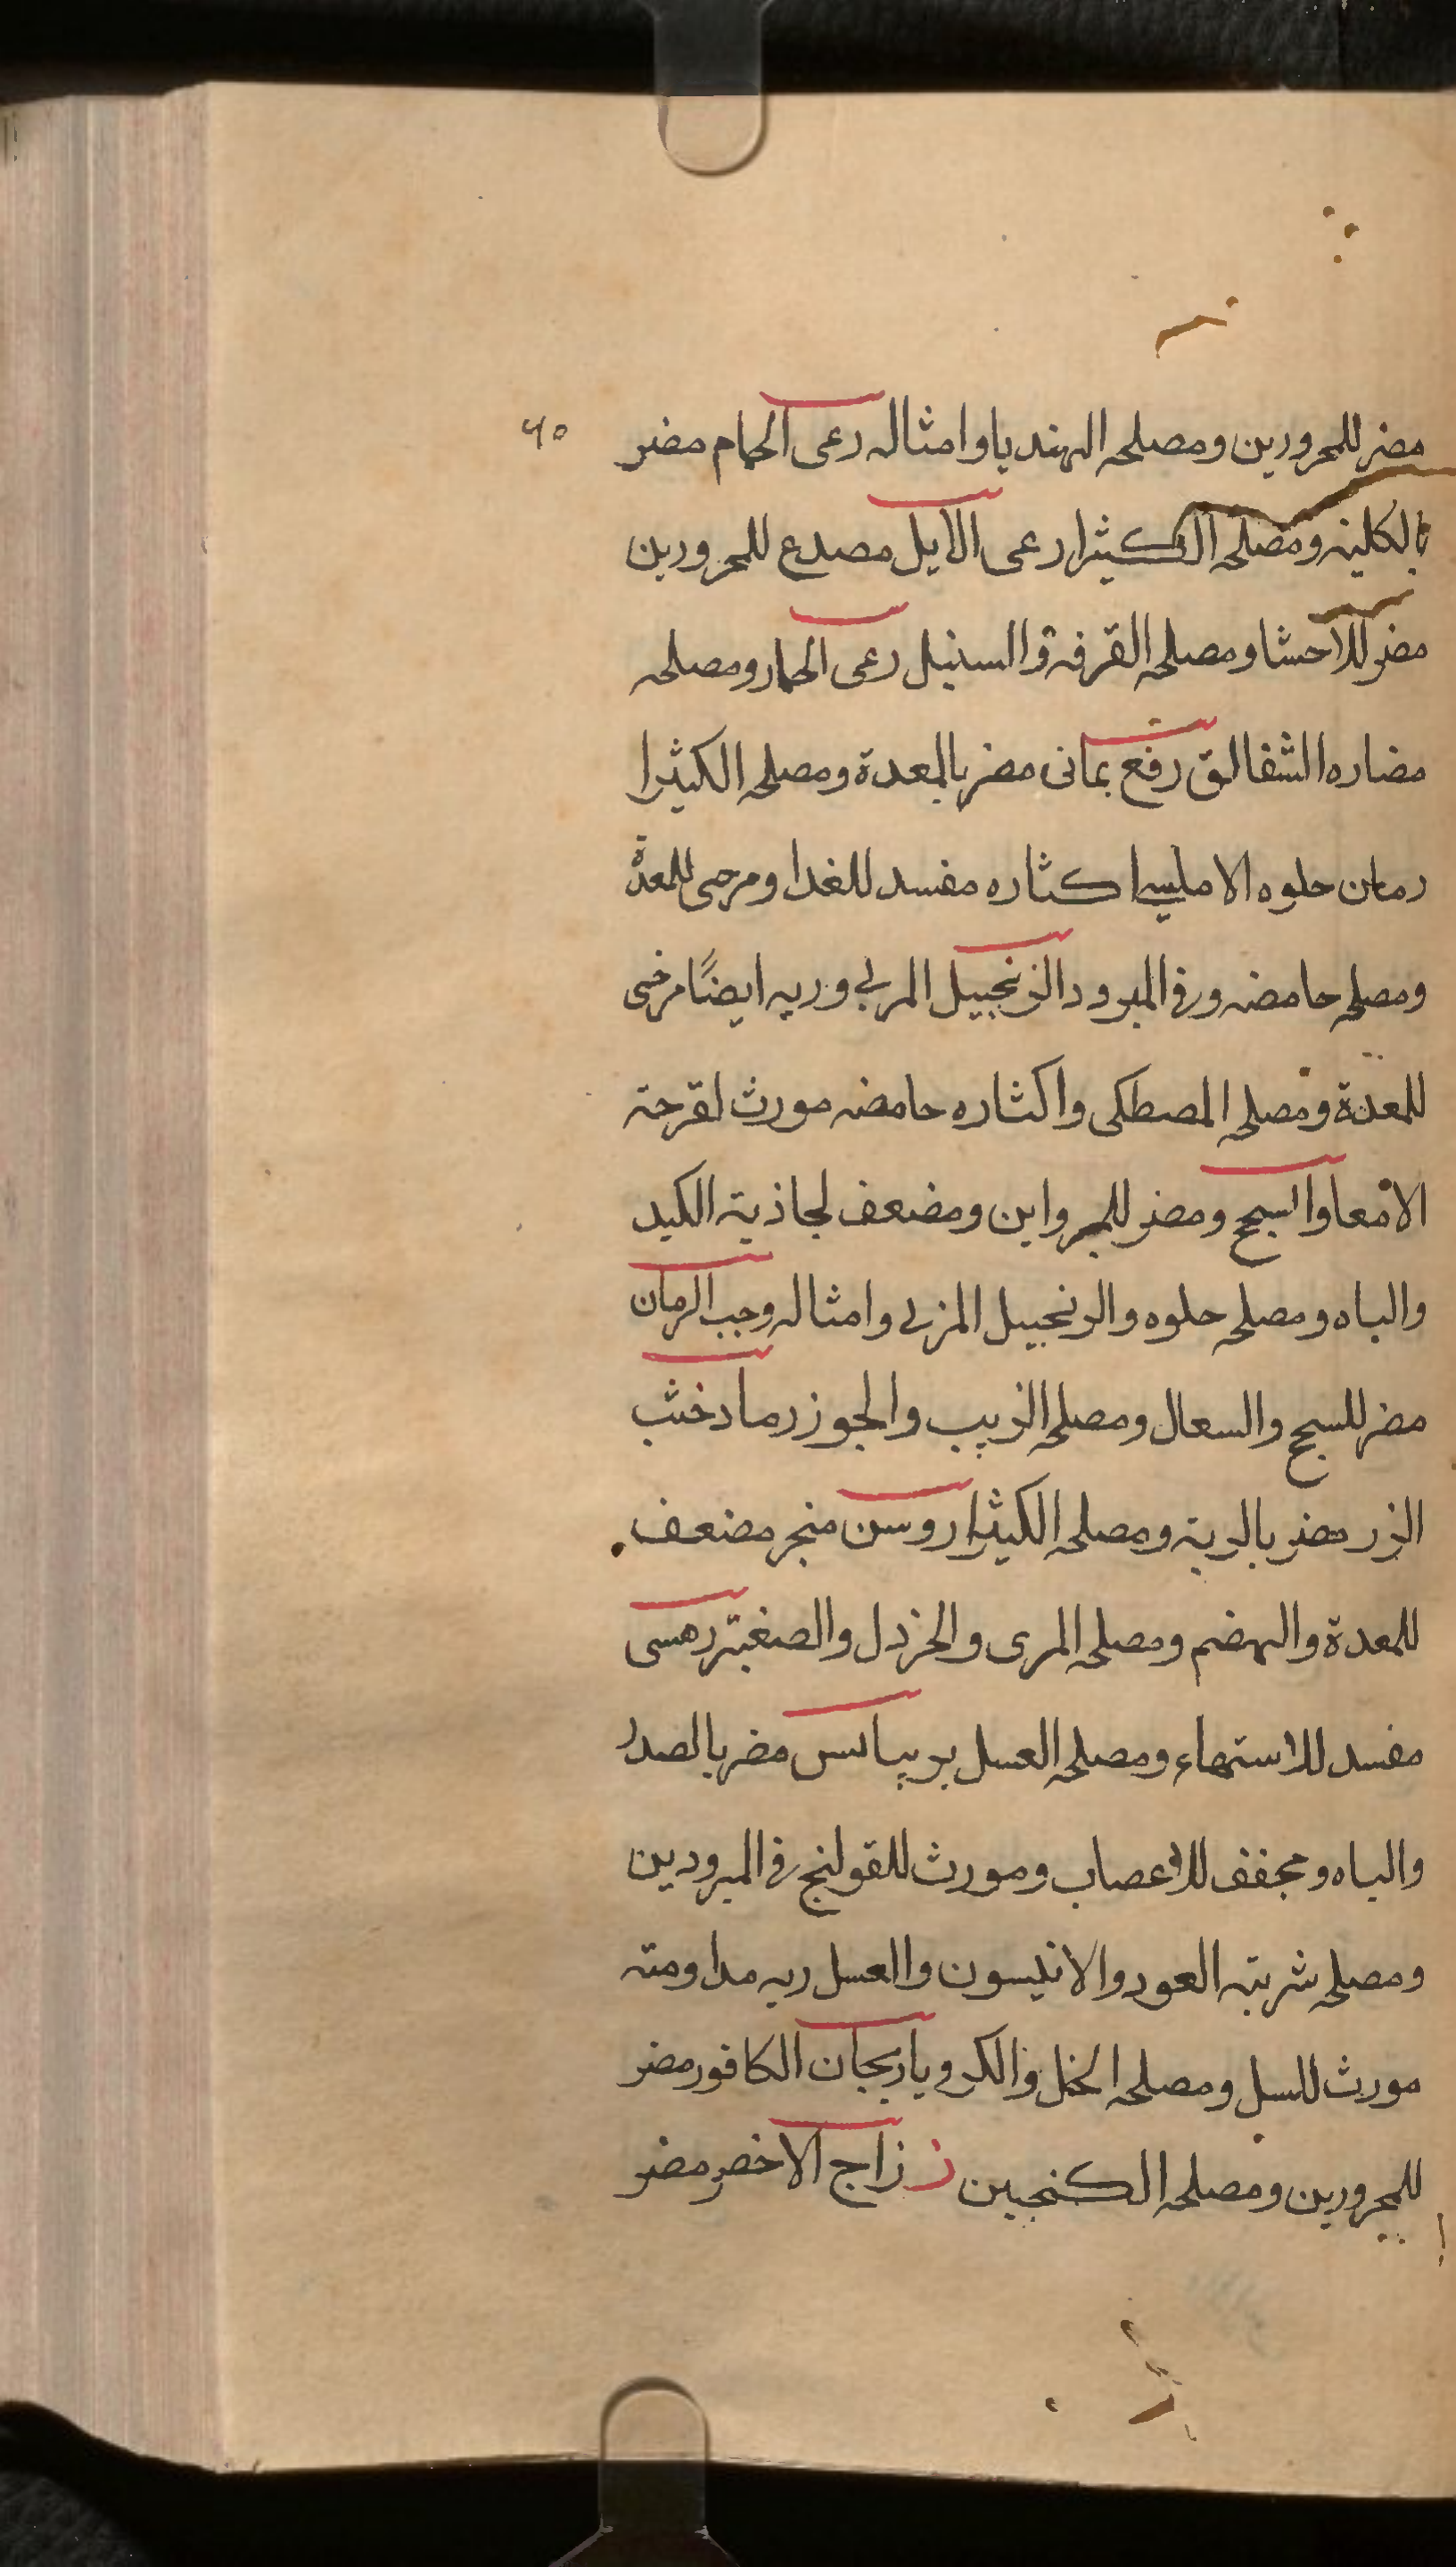 مضر للمحرورين ومصلحه الهندبا وامثاله رعى الحمام مضر
بالكليه ومصلحه الكثيرا رعى الايل مصدع للمحرورين
مضر للاحشا ومصلحه القرفة والسنبل رعى الحمار ومصلحه
مضاره الشقالق رفع يمانى مضر بالمعدة ومصلحه الكثيرا
رمان حلوه الامليسا كثاره مفسد للغدا ومرحى للمعدة
ومصلحه حامضه وفى المبرود الزنجبيل المربى وربه ايضًا مرخى
للمعدة ومصلحه المصطكى واكثاره حامضه مورث لقرحة
الامعا والسحج ومضر للمبرواين ومضعف لجاذبة الكبد
والباه ومصلحه حلوه والزنجبيل المزبى وامثاله وحب الرمان
مضر للسحج والسعال ومصلحه الزبيب والجوز رماد خشب
الزر مضر بالرية ومصلحه الكثيرا روسن منجر مضعف
للمعدة والهضم ومصلحه المرى والخردل والصغبتر رهسى
مفسد للاستهاء ومصلحه العسل بريباس مضر بالصدر
والباه ومجفف للاعصاب ومورث للقولنج فى المبرودين
ومصلحه شربته العود والانيسون والعسل ربه مداومته
مورث للسل ومصلحه الخل والكرويا ريحان الكافور مضر
للمحرورين ومصلحه الكنجبين ز زاج الاخضر مضر